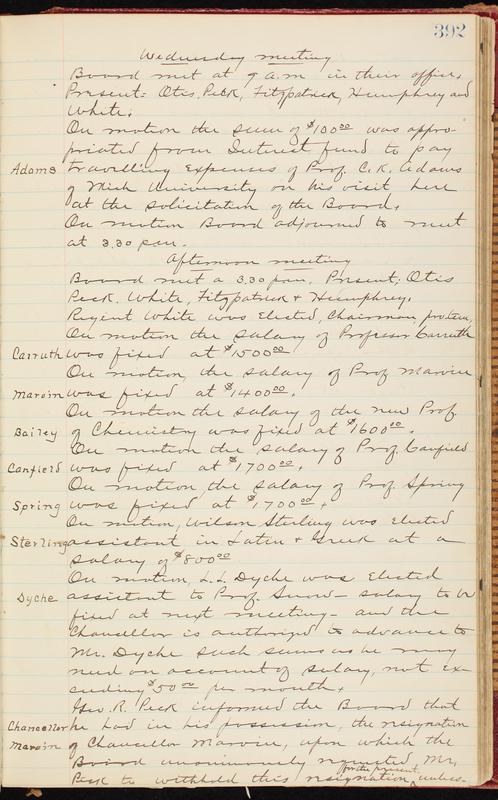 392
Wednesday meeting
Board met at 9 a.m. in their office.
Present: Otis, Peck, Fitzpatrick, Humphrey and
White.
On motion the sum of $100 00 was appro-
priated from Interest fund to pay
Adams travelling expenses of Prof. C. K. Adams
of Mich University on his visit here
at the solicitation of the Board.
On motion Board adjourned to meet
at 3.30 p.m.
Afternoon meeting
Board met a 3.30 p.m. Present; Otis
Peck. White, Fitzpatrick & Humphrey.
Regent White was elected, Chairman, pro. tem.
On motion the salary of Professor Carruth
Carruth was fixed at $1500 00
On motion, the salary of Prof Marvin
Marvin was fixed at $1400 00.
On motion the salary of the new Prof
Bailey of Chemistry was fixed at $1600 00.
On motion the salary of Prof. Canfield
Canfield was fixed at $1700 00.
On motion the salary of Prof. Spring
Spring was fixed at $1,700 00.
On motion, Wilson Sterling was elected
Sterling assistant in Latin & Greek at a
salary of $800 00
On motion, L. L. Dyche was elected
Dyche assistant to Prof. Snow - salary to be
fixed at next meeting - and the
Chancellor is authorized to advance to
Mr. Dyche such sums as he may
need on account of salary, not ex-
ceeding $50 00 per month.
Geo. R. Peck informed the Board that
Chancellor he had in his possession, the resignation
Marvin of Chancellor Marvin, upon which the
Board unanimously requested, Mr,
Peck to withhold this resignation for the present, unless-